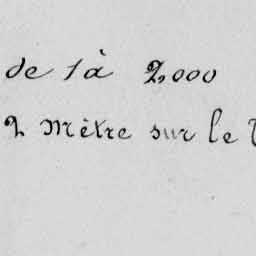 de 1 à 2,000
2 Mètre sur le